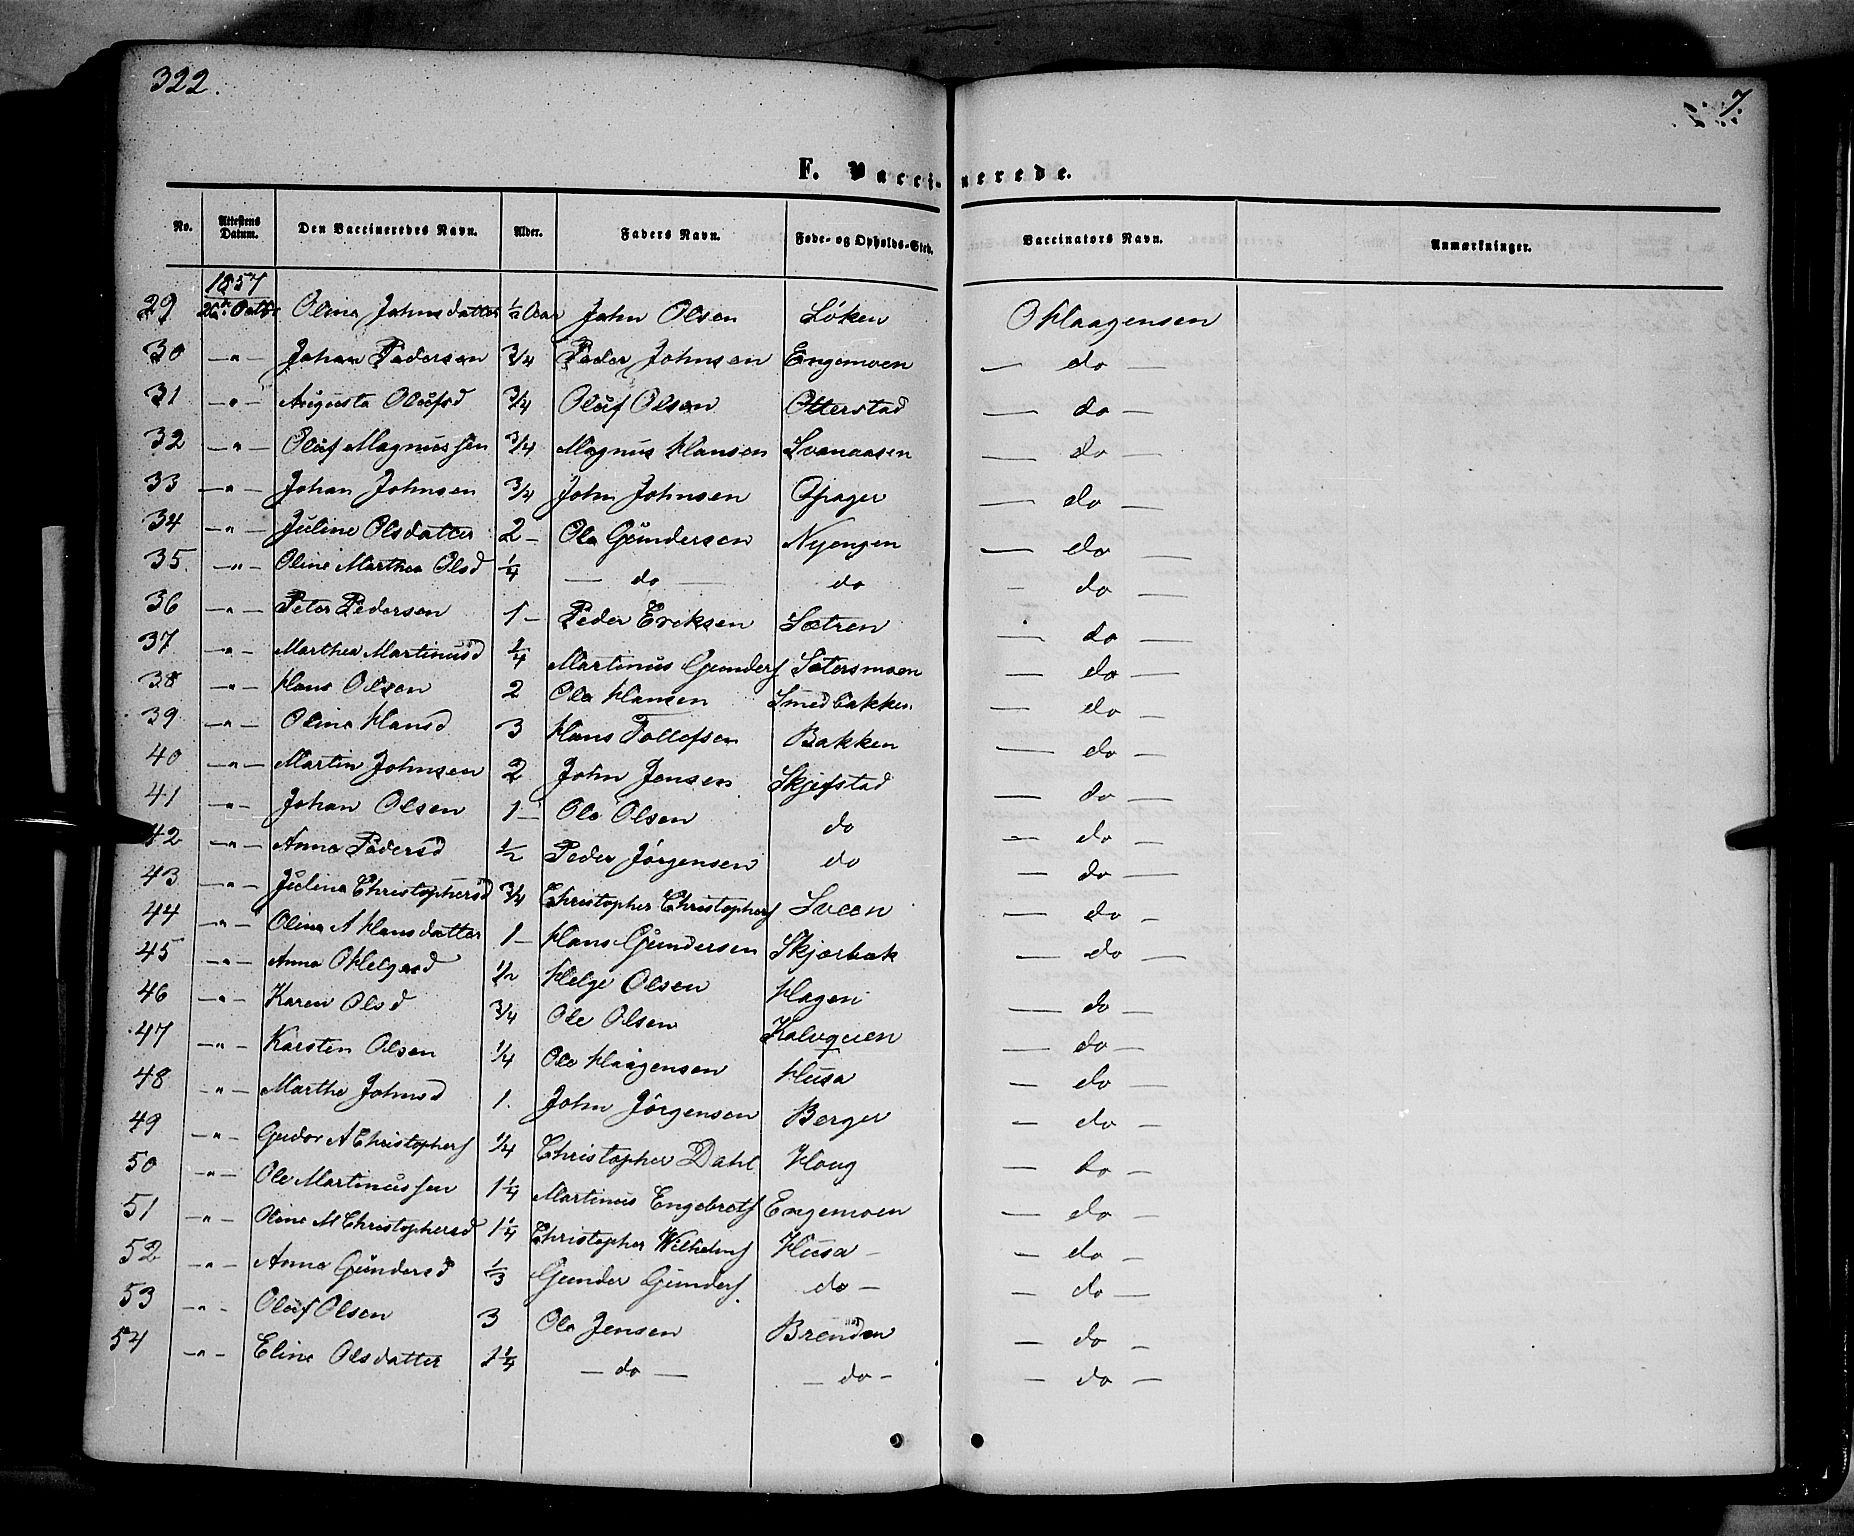 322.
7
F. Vaccinerede.
No. Attestens Datum. Den Vaccineredes Navn. Alder. Faders Navn. Føde- og Opholds-Sted. Vaccinators Navn. Anmærkninger.
1857
29 Octbr Olina Johnsdatter 1/2 Aar John Olsen Løken O Haagensen
30 —"— Johan Pedersen 3/4 Peder Johnsen Engemoen — do —
31 —"— Augusta Olufsd 3/4 Oluf Olsen Otterstad — do —
32 —"— Oluf Magnussen 3/4 Magnus Hansen Svenaasen — do —
33 —"— Johan Johnsen 3/4 John Johnsen Opager — do —
34 —"— Juline Olsdatter 2 — Ole Gundersen Nyengen — do —
35. —"— Oline Marthea Olsd 1/4 — do — do — do —
36 —"— Peter Pedersen 1 — Peder Ericksen Sætren — do —
37 —"— Marthea Martinusd 1/4 Martinus Gunders Sætersmoen — do —
38 —"— Hans Olsen 2 Ole Hansen Smedbakken — do —
39 —"— Olina Hansd 3 Hans Tollefsen Bakken — do —
40 —"— Martin Johnsen 2 John Jensen Skjefstad — do —
41 —"— Johan Olsen 1 — Ole Olsen do — do —
42 —"— Anna Pedersd 1/2 Peder Jørgensen do — do —
43 —"— Julina Christophersd 3/4 Christopher Christophers Sveen — do —
44 —"— Olina A Hansdatter 1 — Hans Gundersen Skjærbæk — do —
45 —"— Anna O Helgesd 1/2 Helge Olsen Hagen — do —
46 —"— Karen Olsd 3/4 Ole Olsen Kalvqveen — do —
47 —"— Karsten Olsen 1/4 Ole Haagensen Husa — do —
48 —"— Marthe Johnsd 1. John Jørgensen Berger — do —
49 —"— A Christophers 1/4 Christopher Dahl Houg — do —
50 —"— Ole Martinussen 1 1/4 Martinus Engebrets Engemoen — do —
51 —"— Oline M Christophersd 1 1/4 Christopher Wilhelms Husa — — do —
52 —"— Anna Gundersd 1/3 Gunder Gunders. do — — do —
53 —"— Oluf Olsen 3 Ole Jensen Brenden — do —
54 —"— Eline Olsdatter 1 1/4 — do — — do — — do —